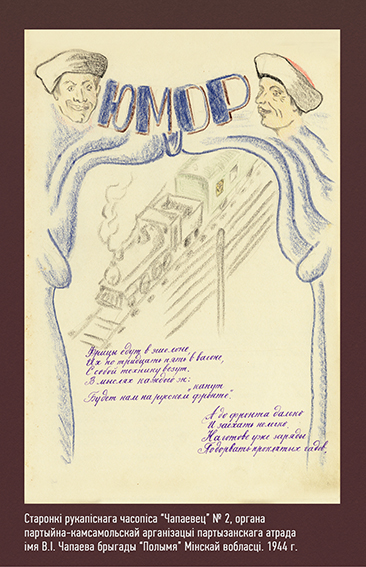 ЮМОР
Фрицы едут в эшелоне,
Их по тридцать пять в вагоне,
С собой технику везут,
В мыслях каждого ж:
"капут
Будет нам на русском фронте".
А до фронта далеко
И заехать нелегко,
Наготове уже заряды
Подорвать проклятых гадов.
Старонкі рукапіснага часопіса "Чапаевец" № 2, органа
партыйна-камсамольскай арганізацыі партызанскага атрада
імя В.І. Чапаева брыгады "Полымя" Мінскай вобласці. 1944 г.